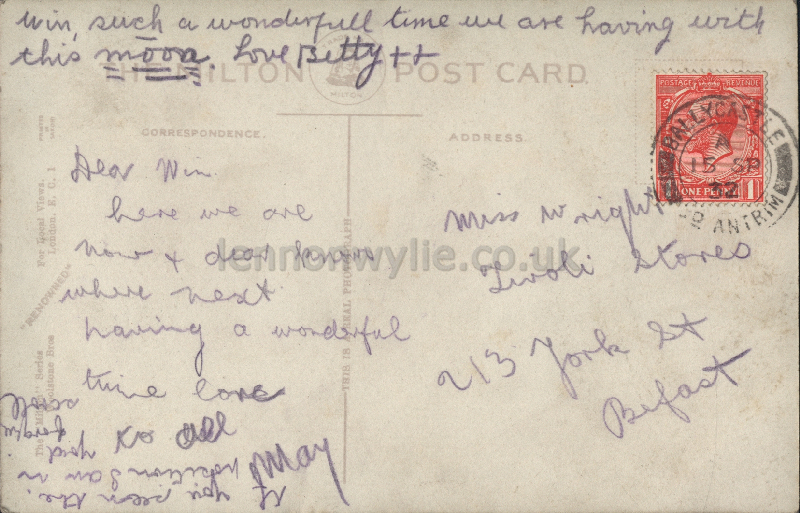 Win, such a wonderfull time we are having with
this moon. Love Betty ++
THE MILTON POST CARD.
MILTON
CORRESPONDENCE.
ADDRESS.
Dear Win
here we are
now & dear knows
where next
having a wonderful
time love
to all
May
If you seen the
position I am in
you'd
Miss Wright
Tivoli Stores
213 York St
Befast
POSTAGE REVENUE
ONE PENNY 1
BALLYCASTLE
15 SP
32
CO ANTRIM
THIS IS A REAL PHOTOGRAPH
The "Milton" Series
Woolstone Bros
"RENOWNED"
For Local Views.
London, E. C. 1
lennonwylie.co.uk